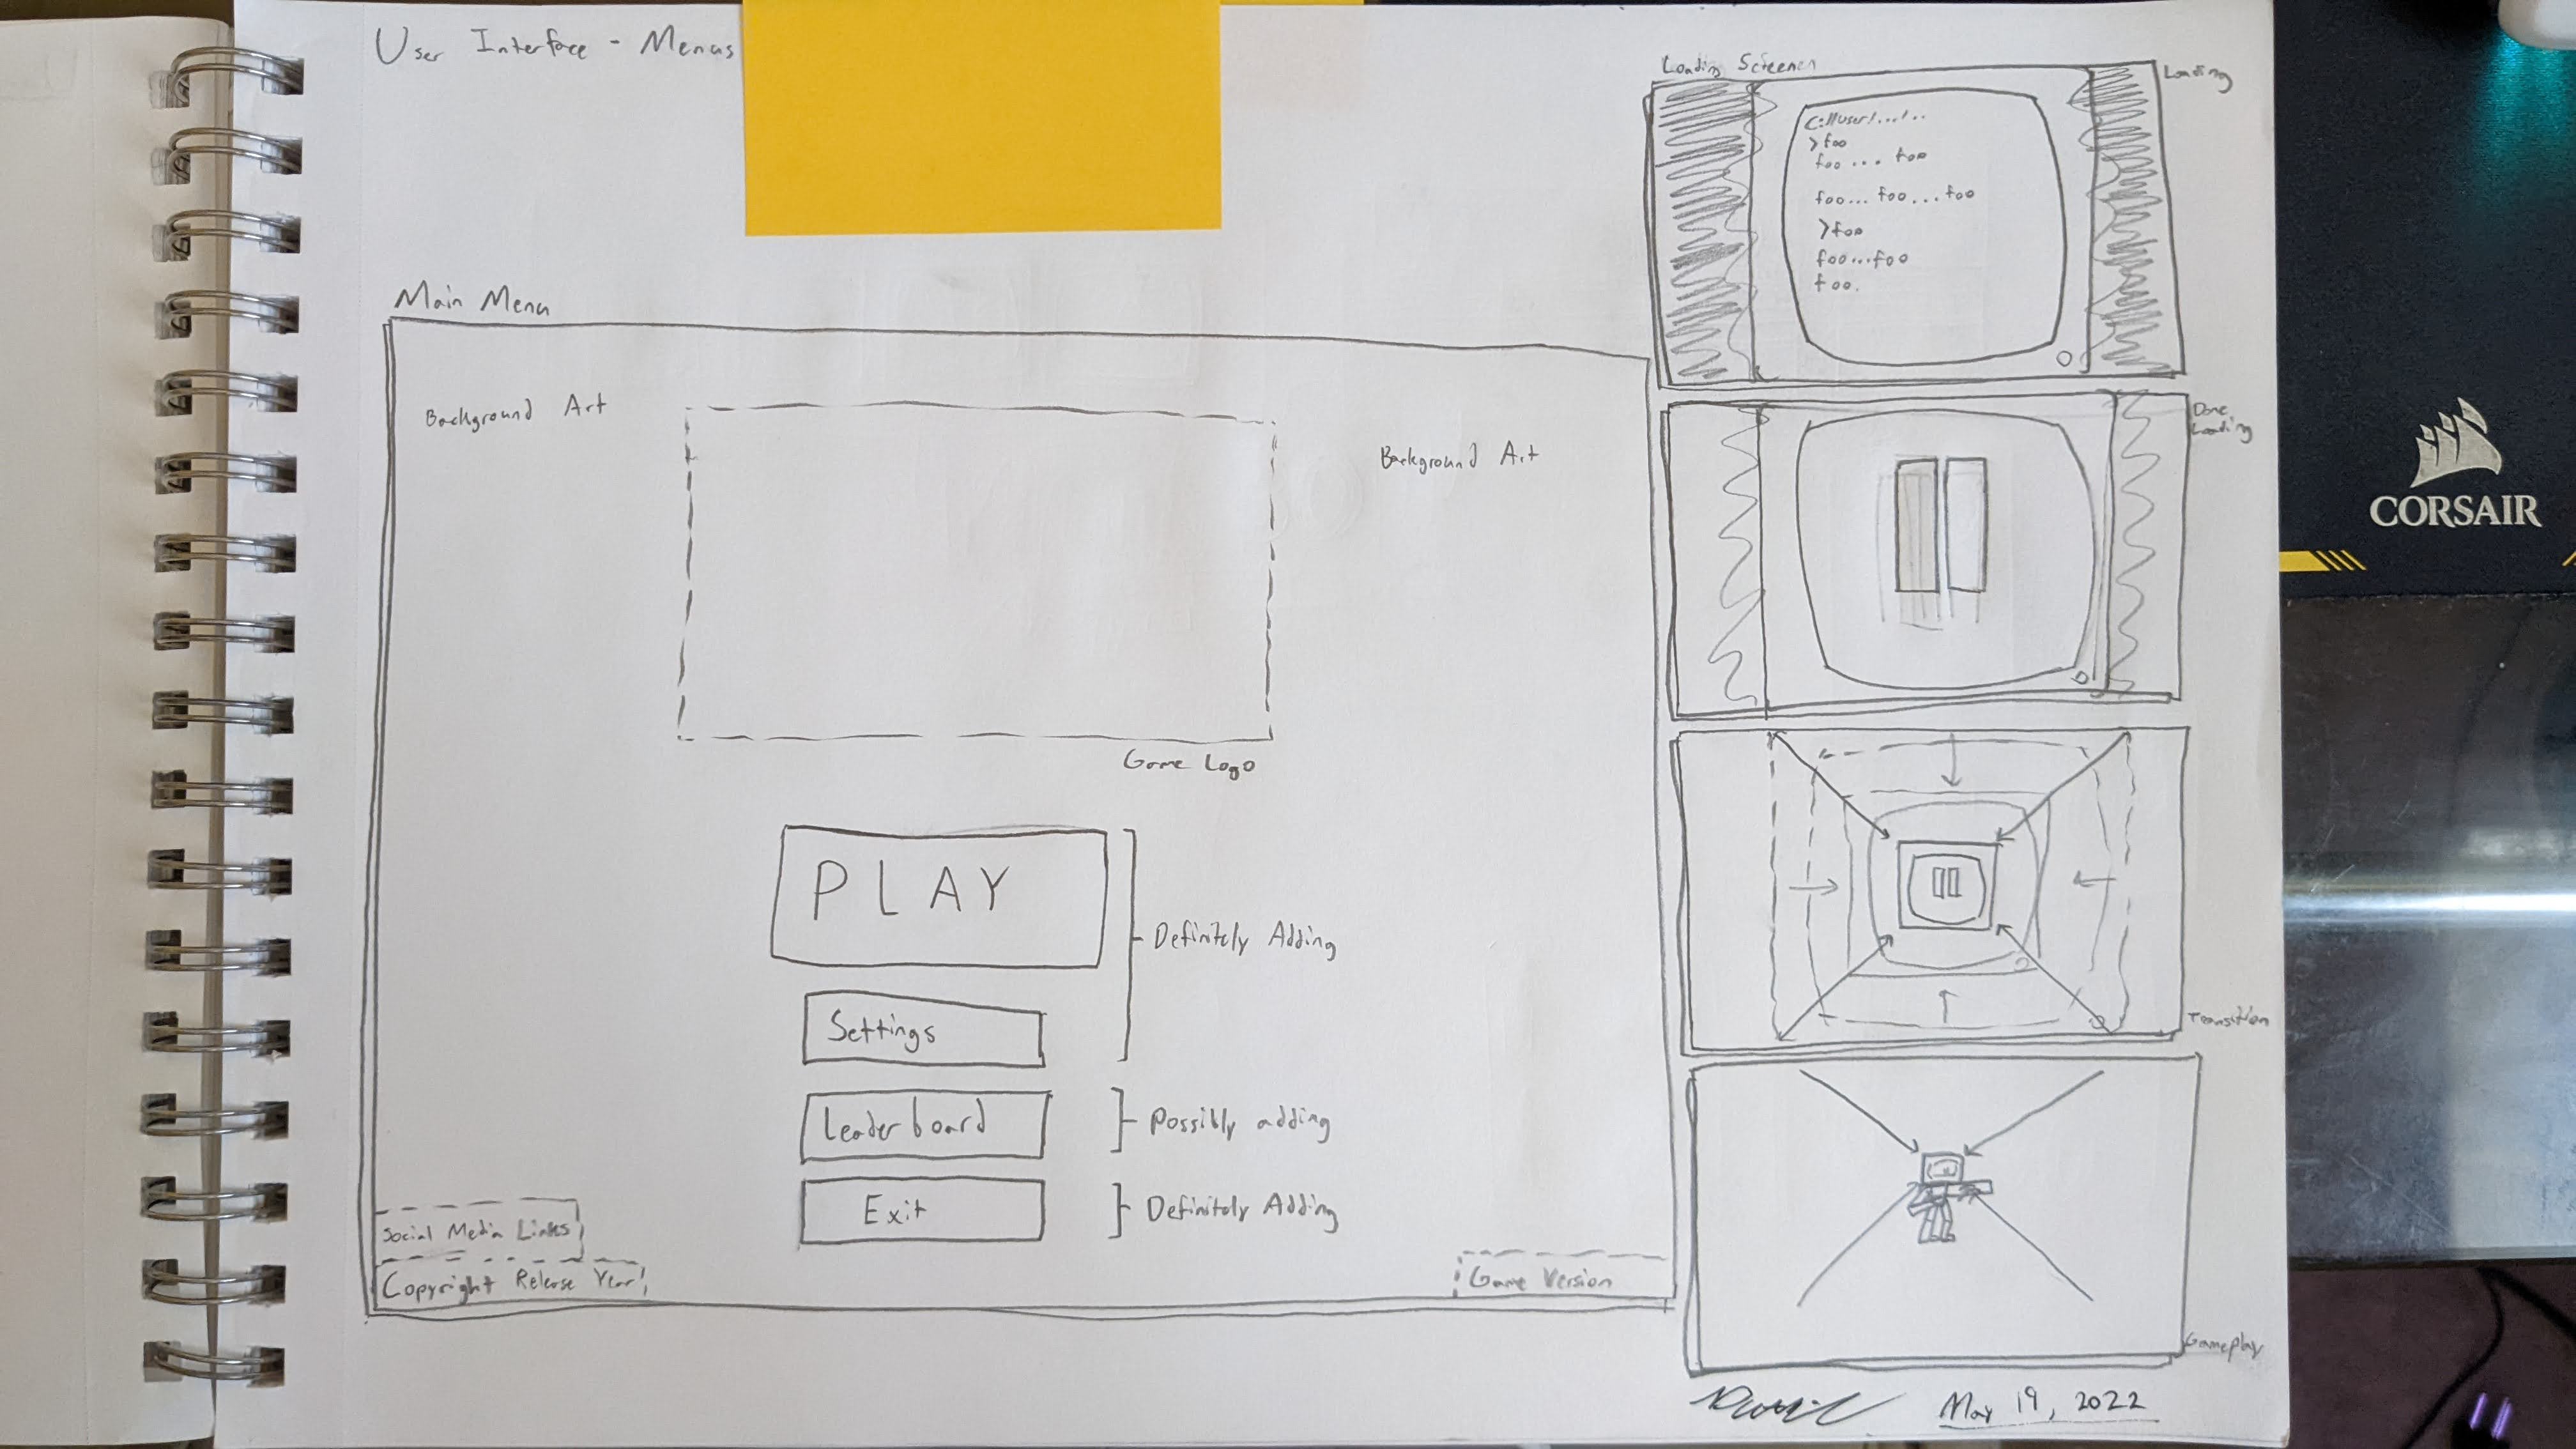 User Interface - Menus
Main Menu
Background Art
Background Art
Game Logo
PLAY
Settings
Definitely Adding
Leaderboard
Possibly adding
Exit
Definitely Adding
Social Media Links
Copyright Release Year
Game Version
Loading Screen
Loading
C://user/.../..
>foo
foo ... foo
foo... foo ... foo
>foo
foo...foo
foo.
Done
Loading
Transition
Gameplay
May 19, 2022
CORSAIR